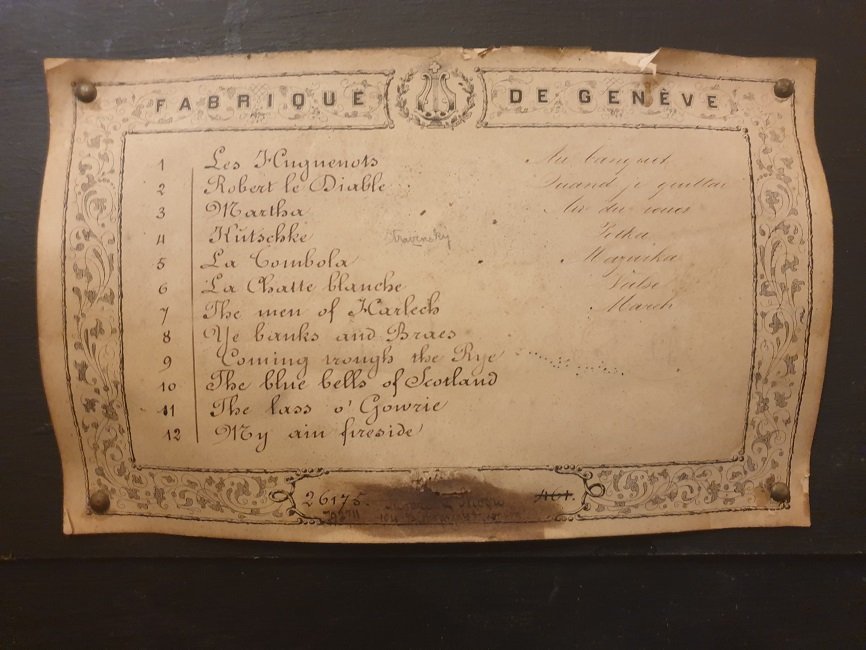 FABRIQUE DE GENÈVE
1 Les Huguenots Au banquet
2 Robert le Diable Quand je quittai
3 Martha Air du
4 Kutschke Polka
5 La Tombola Mazurka
6 La Chatte blanche Valse
7 The men of Harlech March
8 Ye banks and Braes
9 Coming trough the Rye
10 The blue bells of Scotland
11 The lass o' Gowrie
12 My ain fireside
26175. 461.